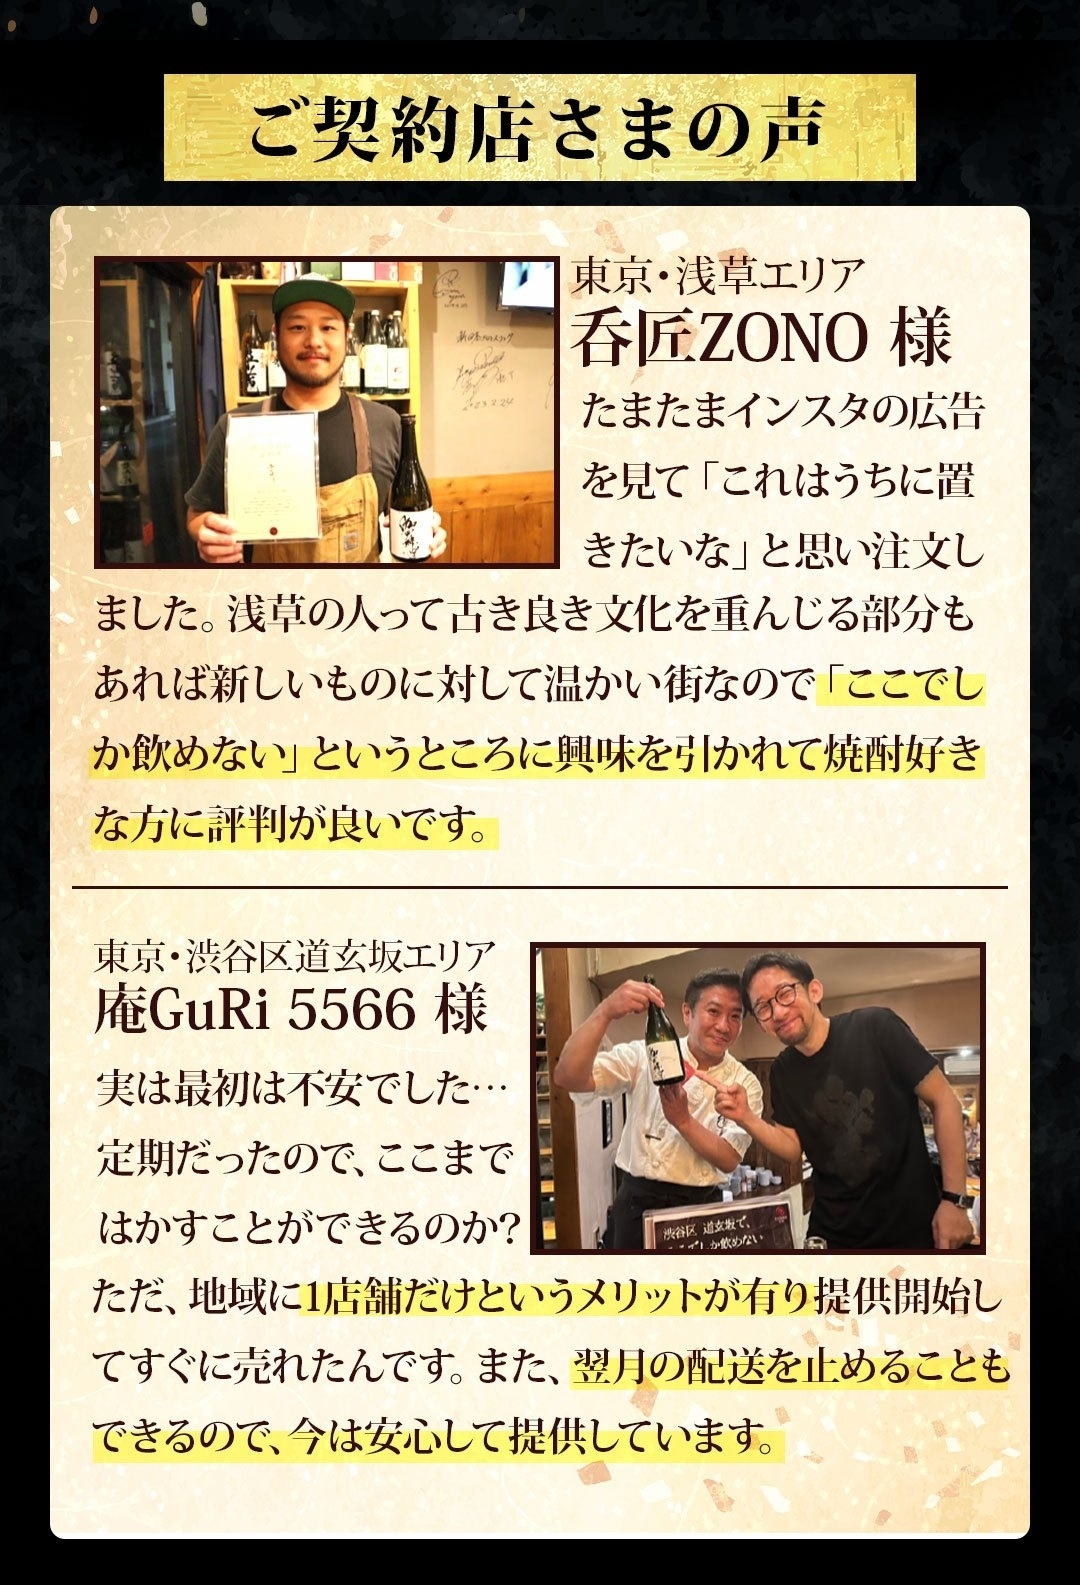 ご契約店さまの声
東京・浅草エリア
呑匠ZONO 様
たまたまインスタの広告
を見て「これはうちに置
きたいな」と思い注文し
ました。浅草の人って古き良き文化を重んじる部分も
あれば新しいものに対して温かい街なので「ここでし
か飲めない」というところに興味を引かれて焼酎好き
な方に評判が良いです。
2023.2.24
東京・渋谷区道玄坂エリア
庵GuRi 5566 様
実は最初は不安でした…
定期だったので、ここまで
はかすことができるのか?
ただ、地域に1店舗だけというメリットが有り提供開始し
てすぐに売れたんです。また、翌月の配送を止めることも
できるので、今は安心して提供しています。
渋谷区 道玄坂で、
ここでしか飲めない